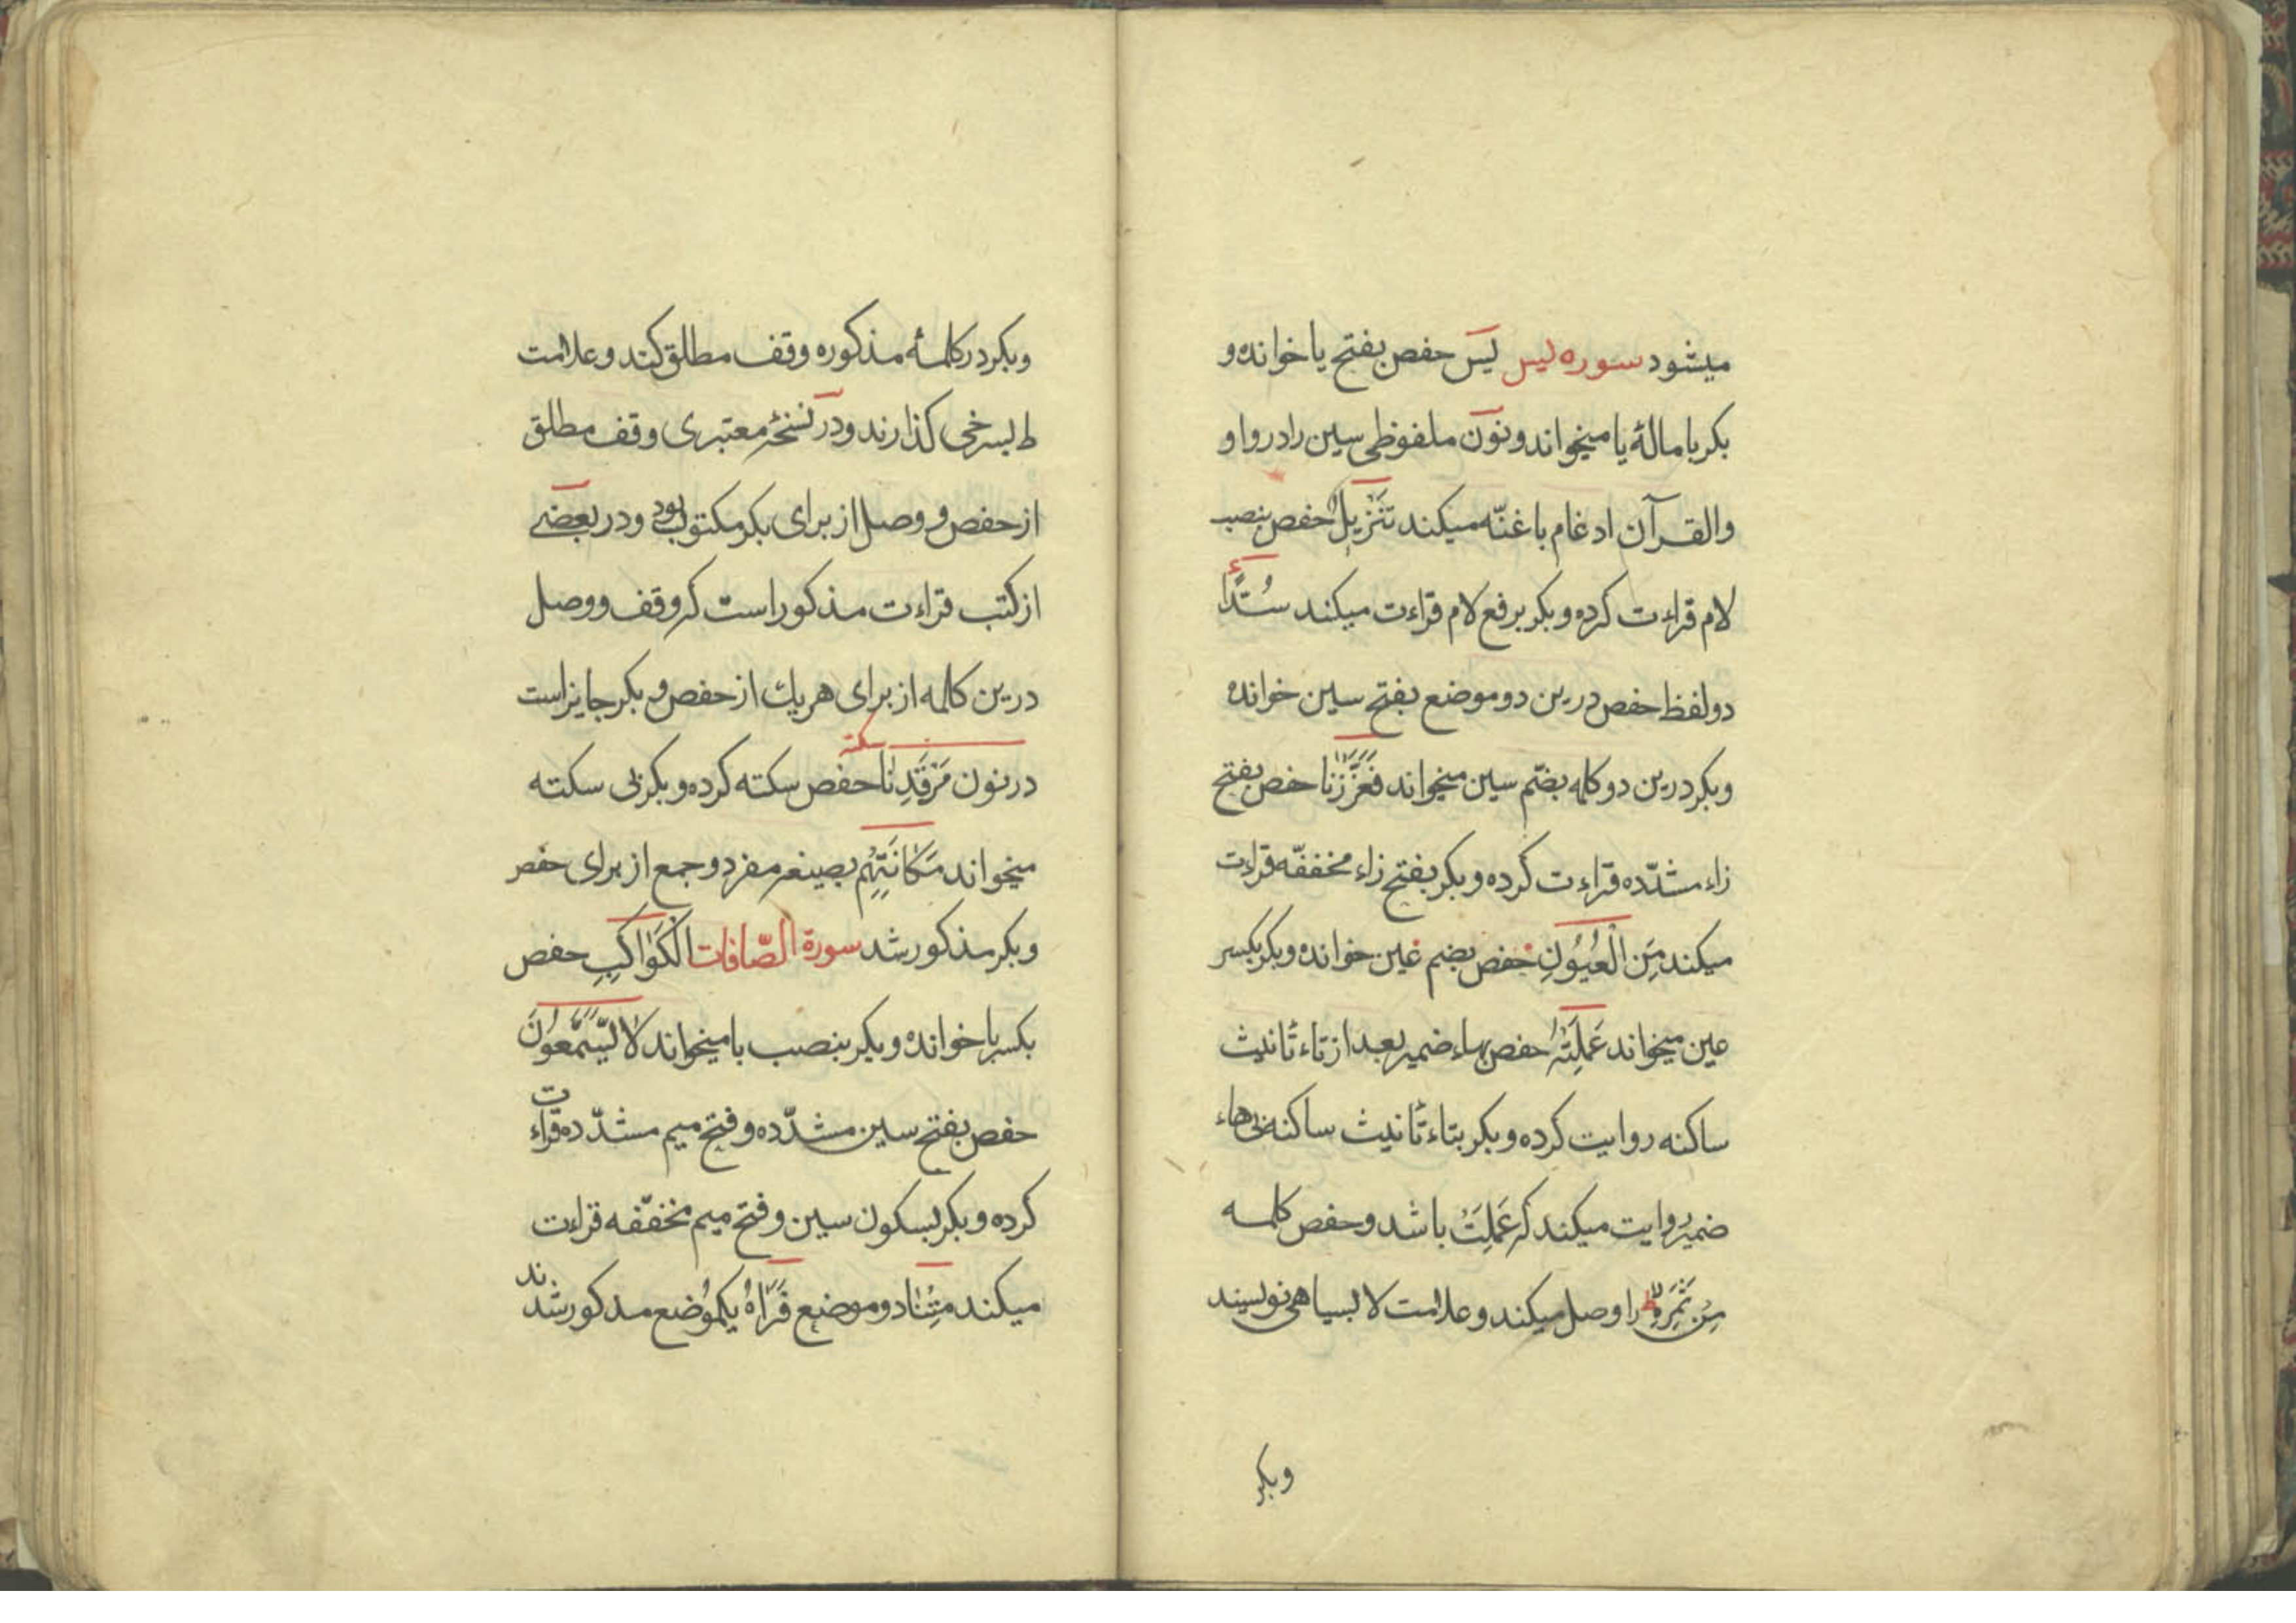 میشود سوره یس یٓس حفص بفتح یا خوانده و
بکر بامالهٔ یا میخواند و نون ملفوظی سین را در واو
والقرآن ادغام باغنّه میکند تَنْزیلَُ حفص بنصب
لام قراءت کرده و بکر برفع لام قراءت میکند سَُدًّا
دو لفظ حفص درین دو موضع بفتح سین خوانده
و بکر درین دو کلمه بضم سین میخواند فَعَزَّزْنا حفص بفتح
زاء مشدّده قراءت کرده و بکر بفتح زاء مخففّه قراءت
میکند مِنَ الْعُیُونِ حفص بضم عین خوانده و بکر بکسر
عین میخواند عَمِلَتْهُ حفص بهاء ضمیر بعد از تاء تانیث
ساکنه روایت کرده و بکر بتاء تانیث ساکنه بی هاء
ضمیر روایت میکند که عَمِلَتْ باشد و حفص کلمه
مِن ثَمَرِهِ را وصل میکند و علامت لا بسیاهی نویسند
و بکر
و بکر در کلمهٔ مذکوره وقف مطلق کند و علامت
ط بسرخی گذارند و در نسخهٔ معتبری وقف مطلق
از حفص و وصل از برای بکر مکتوب بود و در بعضے
از کتب قراءت مذکور است که وقف و وصل
درین کلمه از برای هریك از حفص و بکر جایز است
در نون مَرْقَدِنا سکته حفص سکته کرده و بکر بی سکته
میخواند مَکانَتِهِم بصیغه مفرد و جمع از برای حفص
و بکر مذکور شد سورة الصّافات الْکَواکِبِ حفص
بکسر با خوانده و بکر بنصب با میخواند لا یَسَّمَّعُونَ
حفص بفتح سین مشدّده و فتح میم مشدّده قراءت
کرده و بکر بسکون سین و فتح میم مخففّه قراءت
میکند مِتْنا دو موضع فَرَاٰهُ یکموضع مذکور شدند